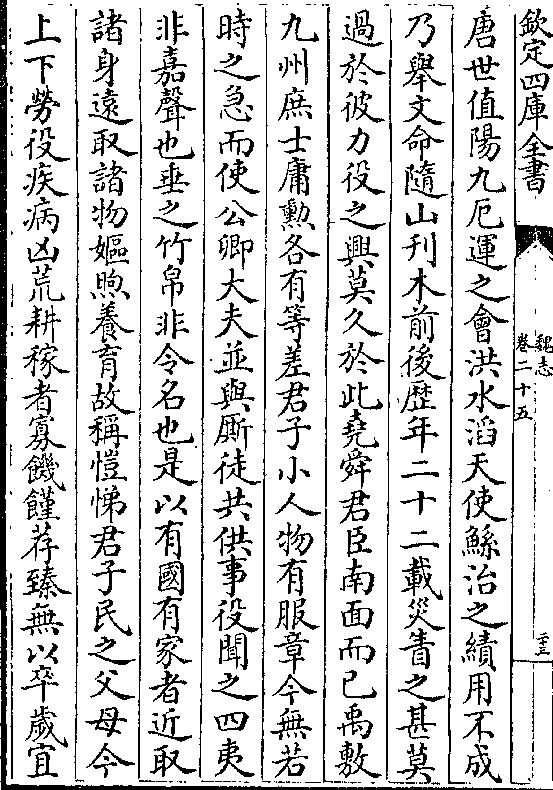 欽定四庫全書
魏志
卷二十五
二十三
唐世值陽九厄運之會洪水滔天使鯀治之績用不成
乃舉文命隨山刋木前後歴年二十二載災眚之甚莫
過於彼力役之興莫久於此堯舜君臣南面而已禹敷
九州庶士庸勲各有等差君子小人物有服章今無若
時之急而使公卿大夫並與厮徒共供事役聞之四夷
非嘉聲也垂之竹帛非令名也是以有國有家者近取
諸身逺取諸物嫗煦養育故稱愷悌君子民之父母今
上下勞役疾病凶荒耕稼者寡饑饉荐臻無以卒歳宜